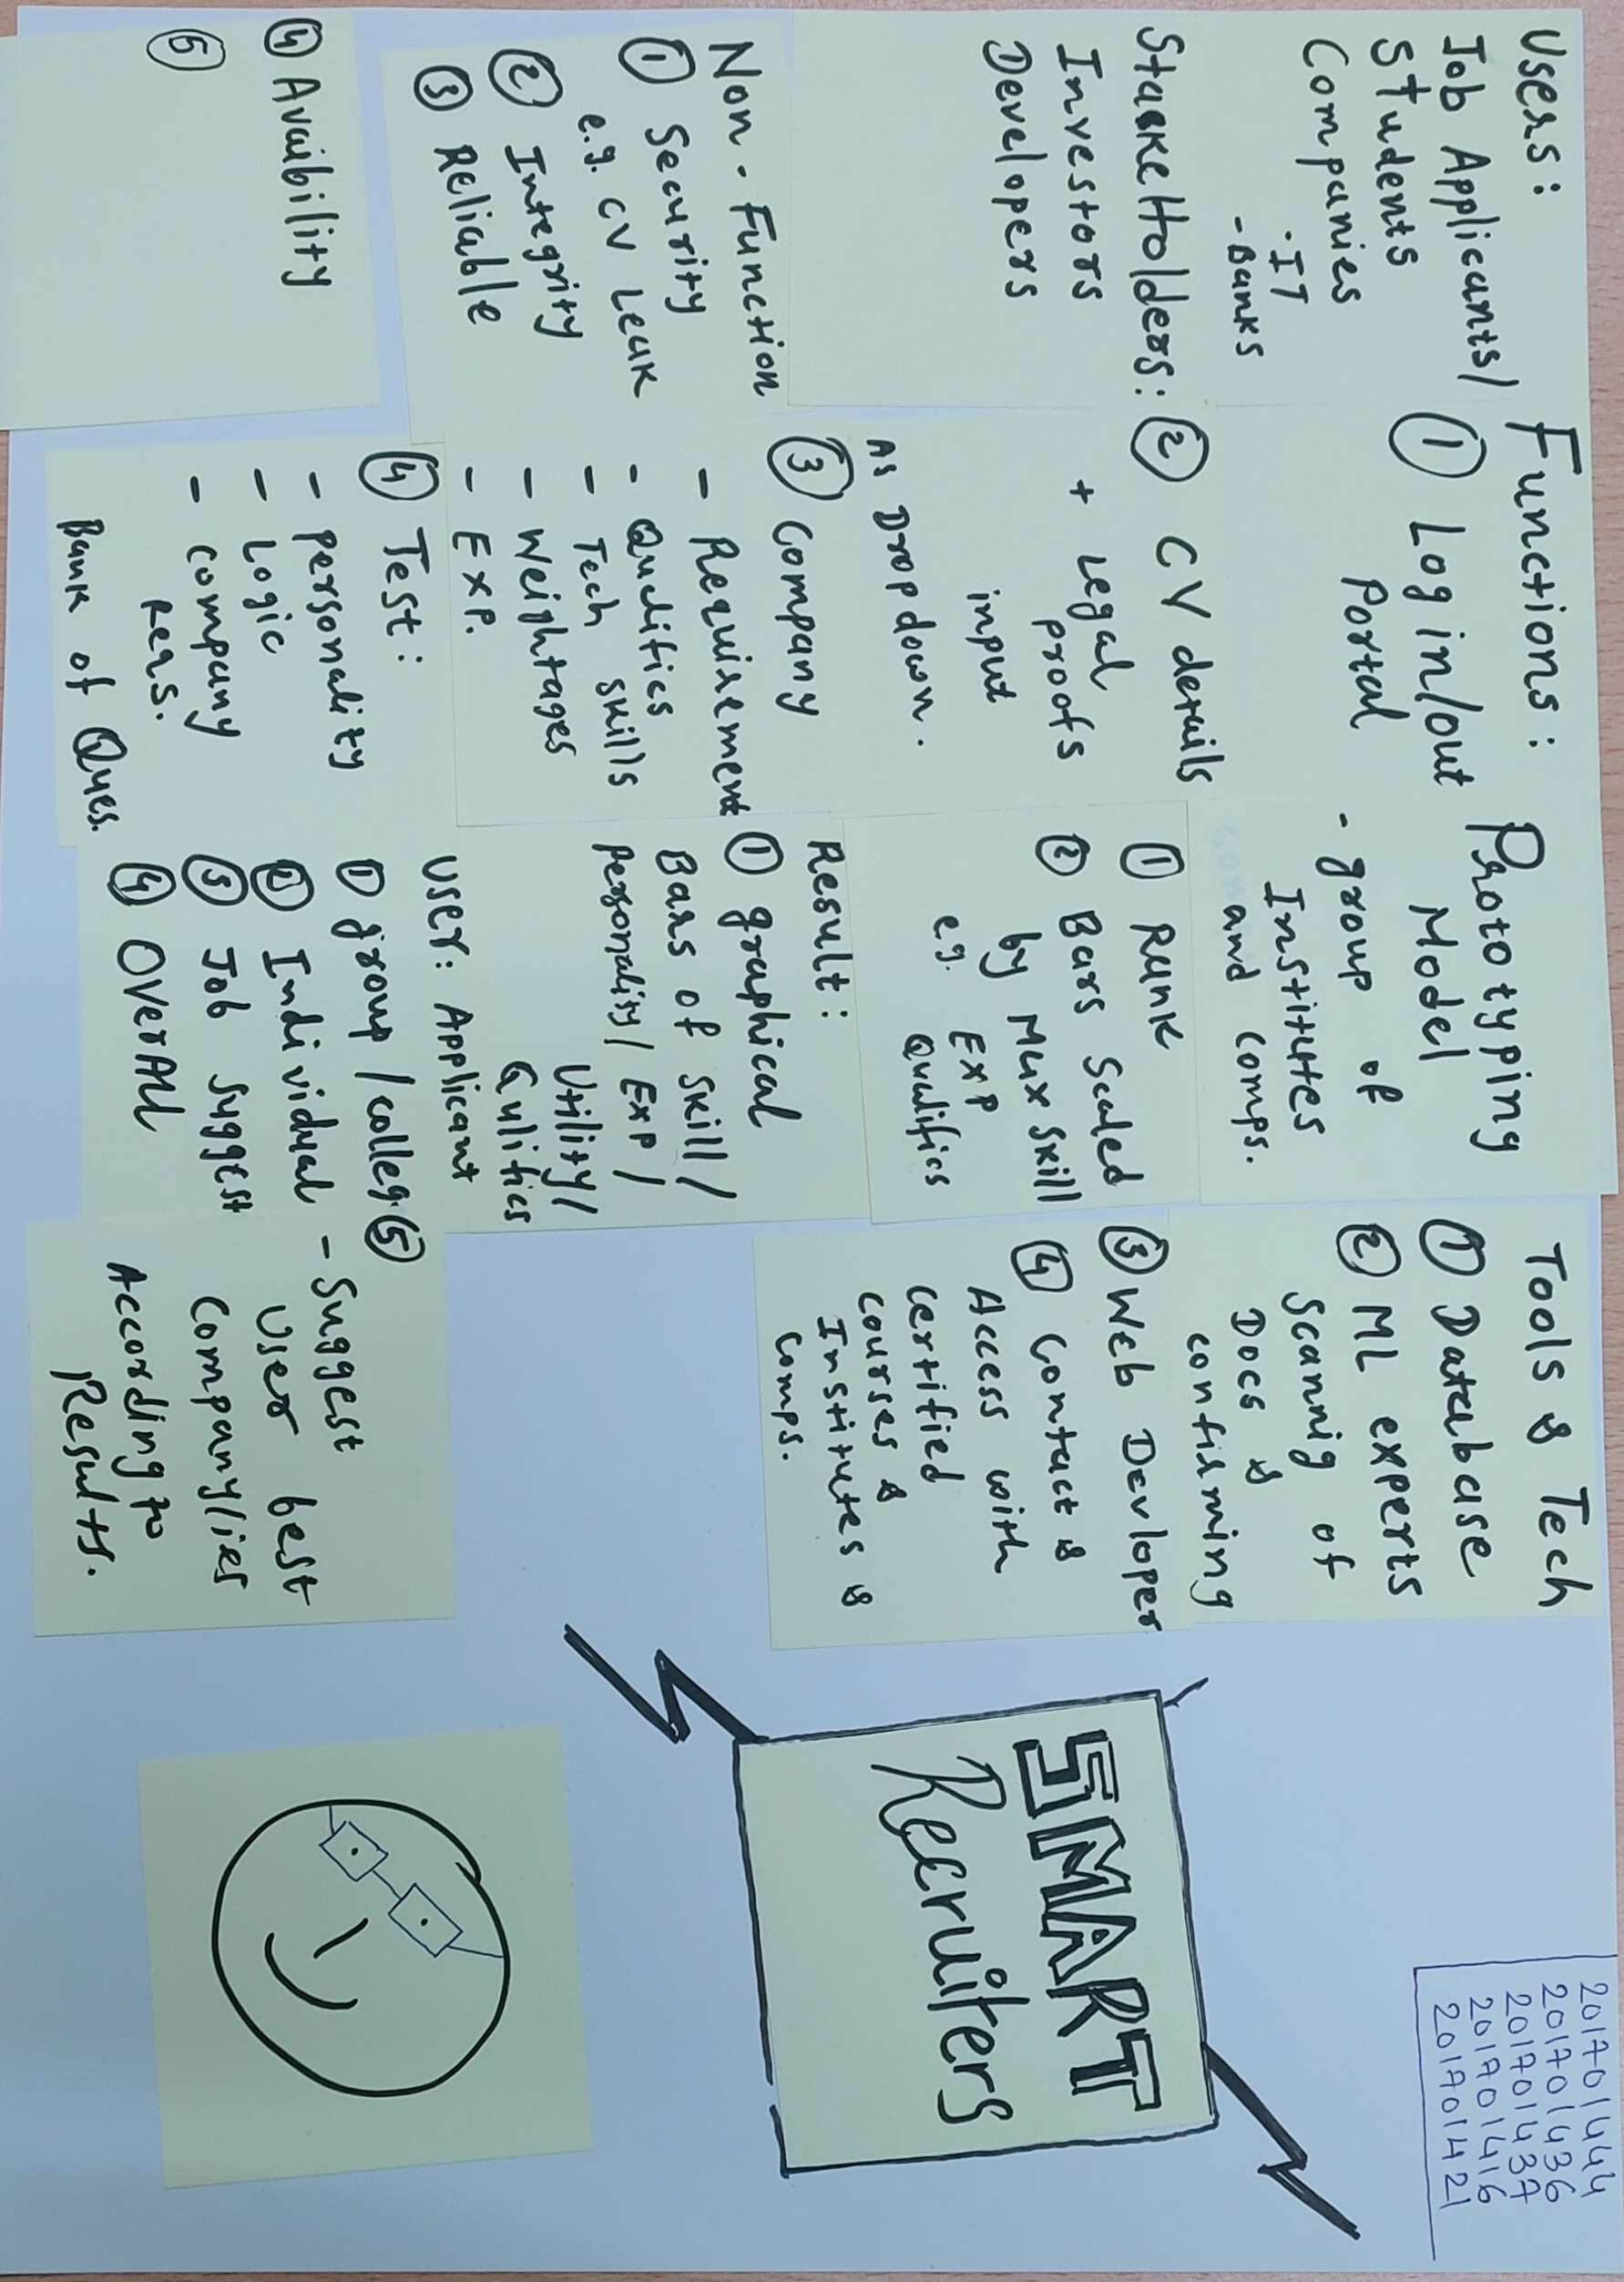 Users:
Job Applicants/
Students
Companies
- IT
- Banks
StakeHolders:
Investors
Developers
Non-Function
① Security
e.g. CV Leak
② Integrity
③ Reliable
④ Availability
⑤
Functions:
① Log in/out
Portal
② CV details
+ Legal
proofs
input
As Dropdown.
③ Company
- Requirement
- Qualifics
- Tech skills
- Weightages
- Exp.
④ Test:
- personality
- Logic
- company
Reqs.
Bank of Ques.
Prototyping
Model
- group of
Institutes
and comps.
① Rank
② Bars Scaled
by Max Skill
e.g. Exp
Qualifics
Result:
① graphical
Bars of skill/
Personality/ Exp/
Utility/
Qulifics
User: Applicant
① group/colleg.
② Individual
③ Job suggest
④ OverAll
Tools & Tech
① Database
② ML experts
Scannig of
Docs &
confirming
③ Web Devloper
④ Contact &
Access with
certified
courses &
Institutes &
comps.
⑤
- Suggest
User best
Company/ies
According to
Results.
SMART
Recruiters
201701444
201701436
201701437
201701416
201701421